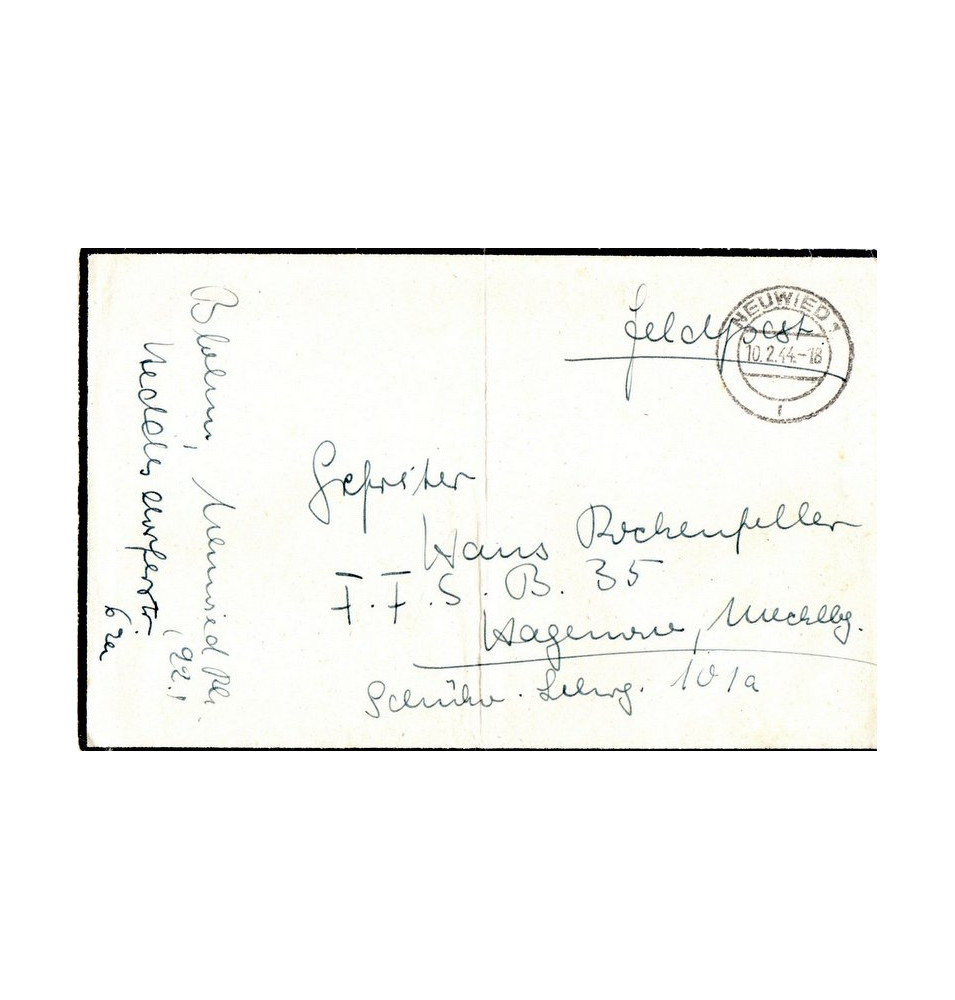 Feldpost.
NEUWIED 1
10.2.44.-18
r
Gefreiter
Hans Rockenfeller
F.F.S. B. 35
Hagenow, Mecklbg.
Schüler 101a
Neuwied Rh.
(22.)
Heddesdorferstr.
62a